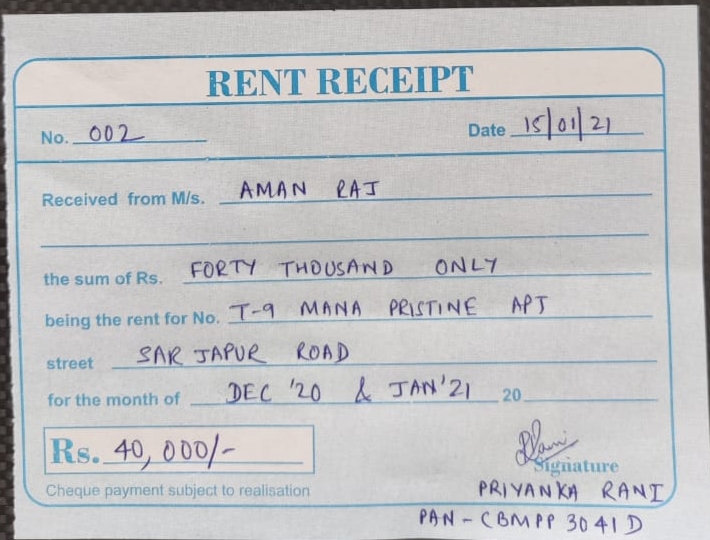 RENT RECEIPT
No. 002 Date 15/01/21
Received from M/s. AMAN RAJ
the sum of Rs. FORTY THOUSAND ONLY
being the rent for No. T-9 MANA PRISTINE APT
street SARJAPUR ROAD
for the month of DEC '20 & JAN'21 20
Rs. 40,000/-
Rani
Signature
Cheque payment subject to realisation
PRIYANKA RANI
PAN - CBMPP3041D